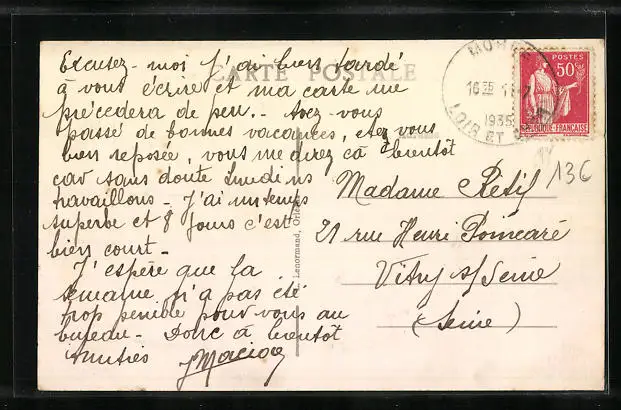 Excusez-moi j'ai bien tardé
à vous écrire et ma carte me
précèdera de peu.- Avez-vous
passé de bonnes vacances, etes vous
bien reposée, vous me direz ça à bientôt
car sans doute lundi ns
travaillons - J'ai un temps
superbe et 8 jours c'est
bien court -
J'espère que la
semaine n'a pas été
trop penible pour vous au
bureau - Donc à bientôt
Amitiés
CARTE POSTALE
Lenormand,
MO
16
1935
LOIR ET
POSTES
50c
REPUBLIQUE FRANÇAISE
136
Madame Rétif
21 rue Henri Poincaré
Vitry s/ Seine
(Seine)